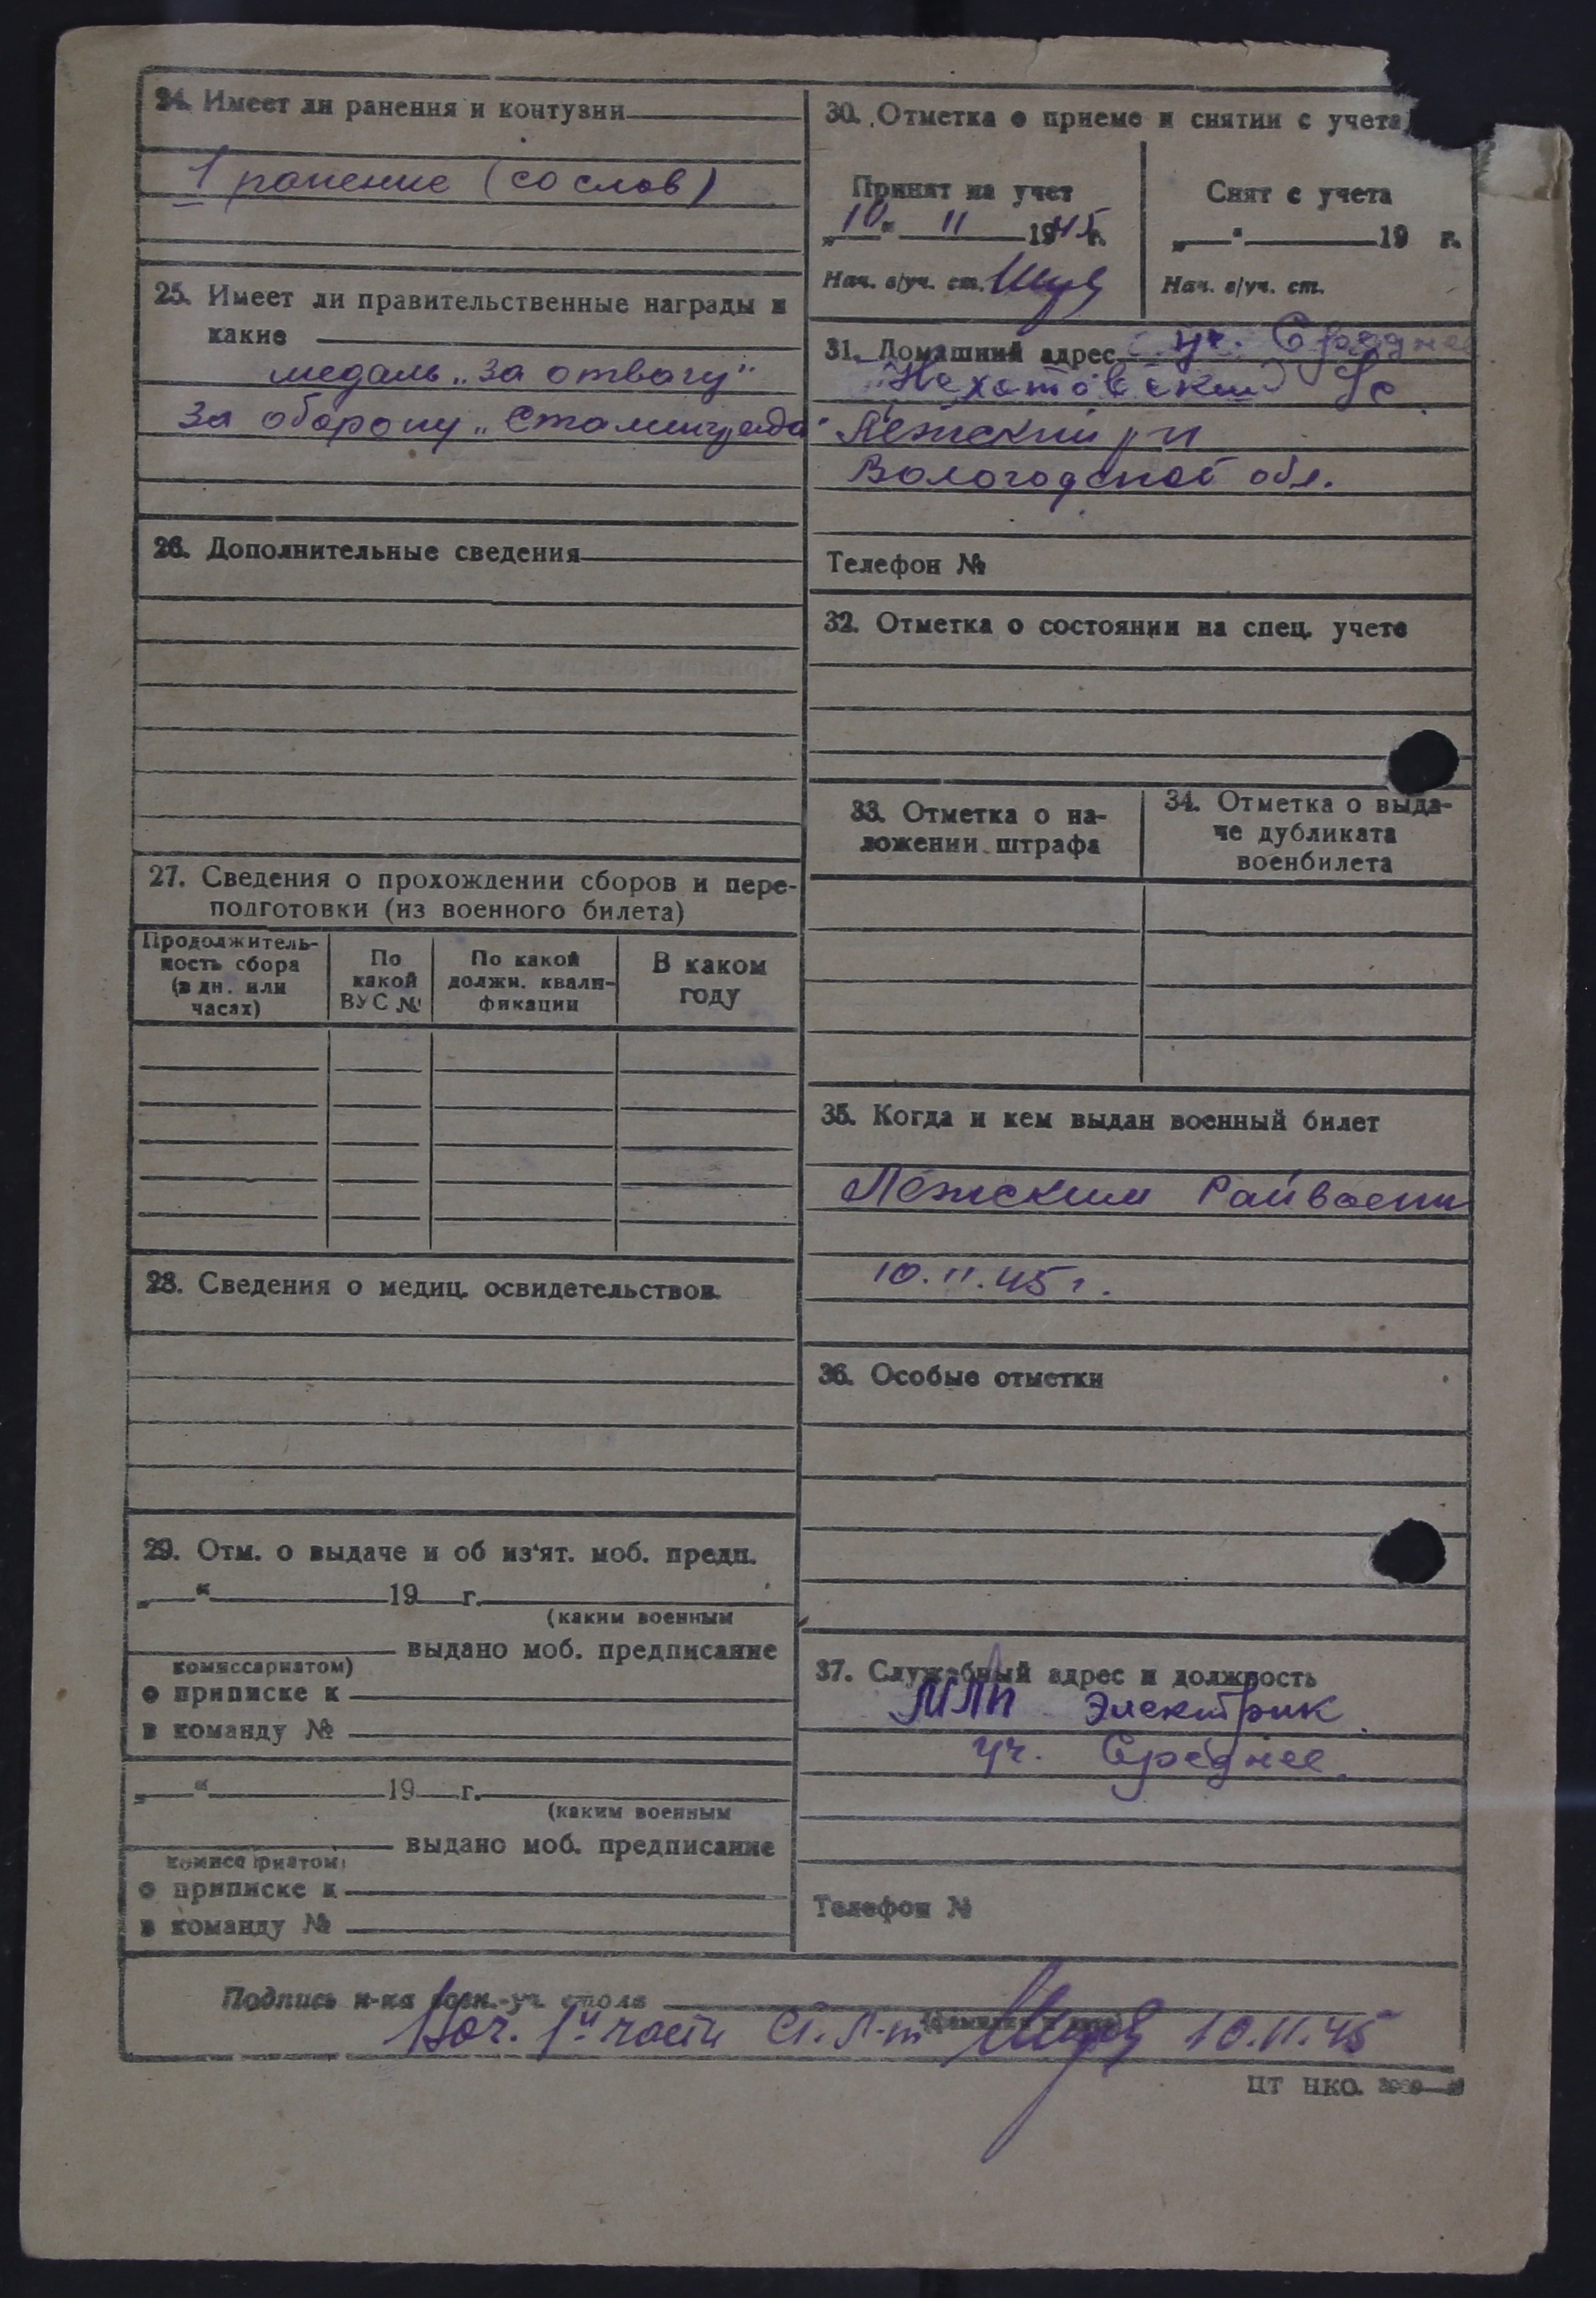 24. Имеет ли ранения и контузии
1 ранение (со слов)
25. Имеет ли правительственные награды и
какие
медаль „За отвагу"
За оборону „Сталинграда"
26. Дополнительные сведения
27. Сведения о прохождении сборов и пере-
подготовки (из военного билета)
Продолжитель-
ность сбора
(в дн. или
часах)
По
какой
ВУС №
По какой
должн. квали-
фикации
В каком
году
28. Сведения о медиц. освидетельствов.
29. Отм. о выдаче и об из'ят. моб. предп.
„ “ 19 г.
(каким военным
выдано моб. предписание
комиссариатом)
о приписке к
в команду №
„ “ 19 г.
(каким военным
выдано моб. предписание
комиссариатом)
о приписке к
в команду №
30. Отметка о приеме и снятии с учета
Принят на учет
„10“ 11 1945 г.
Нач. в/уч. ст.
Снят с учета
„ “ 19 г.
Нач. в/уч. ст.
31. Домашний адрес уч. Среднее
с/с
Лежский р-н
Вологодской обл.
Телефон №
32. Отметка о состоянии на спец. учете
33. Отметка о на-
ложении штрафа
34. Отметка о выда-
че дубликата
военбилета
35. Когда и кем выдан военный билет
Лежским Райвоенк
10.11.45 г.
36. Особые отметки
37. Служебный адрес и должность
МЛП Электрик
уч. Среднее
Телефон №
Подпись н-ка воен.-уч. стола
(фамилия и дата)
Нач. 1й части Ст. Л-т 10.11.45
ЦТ НКО.